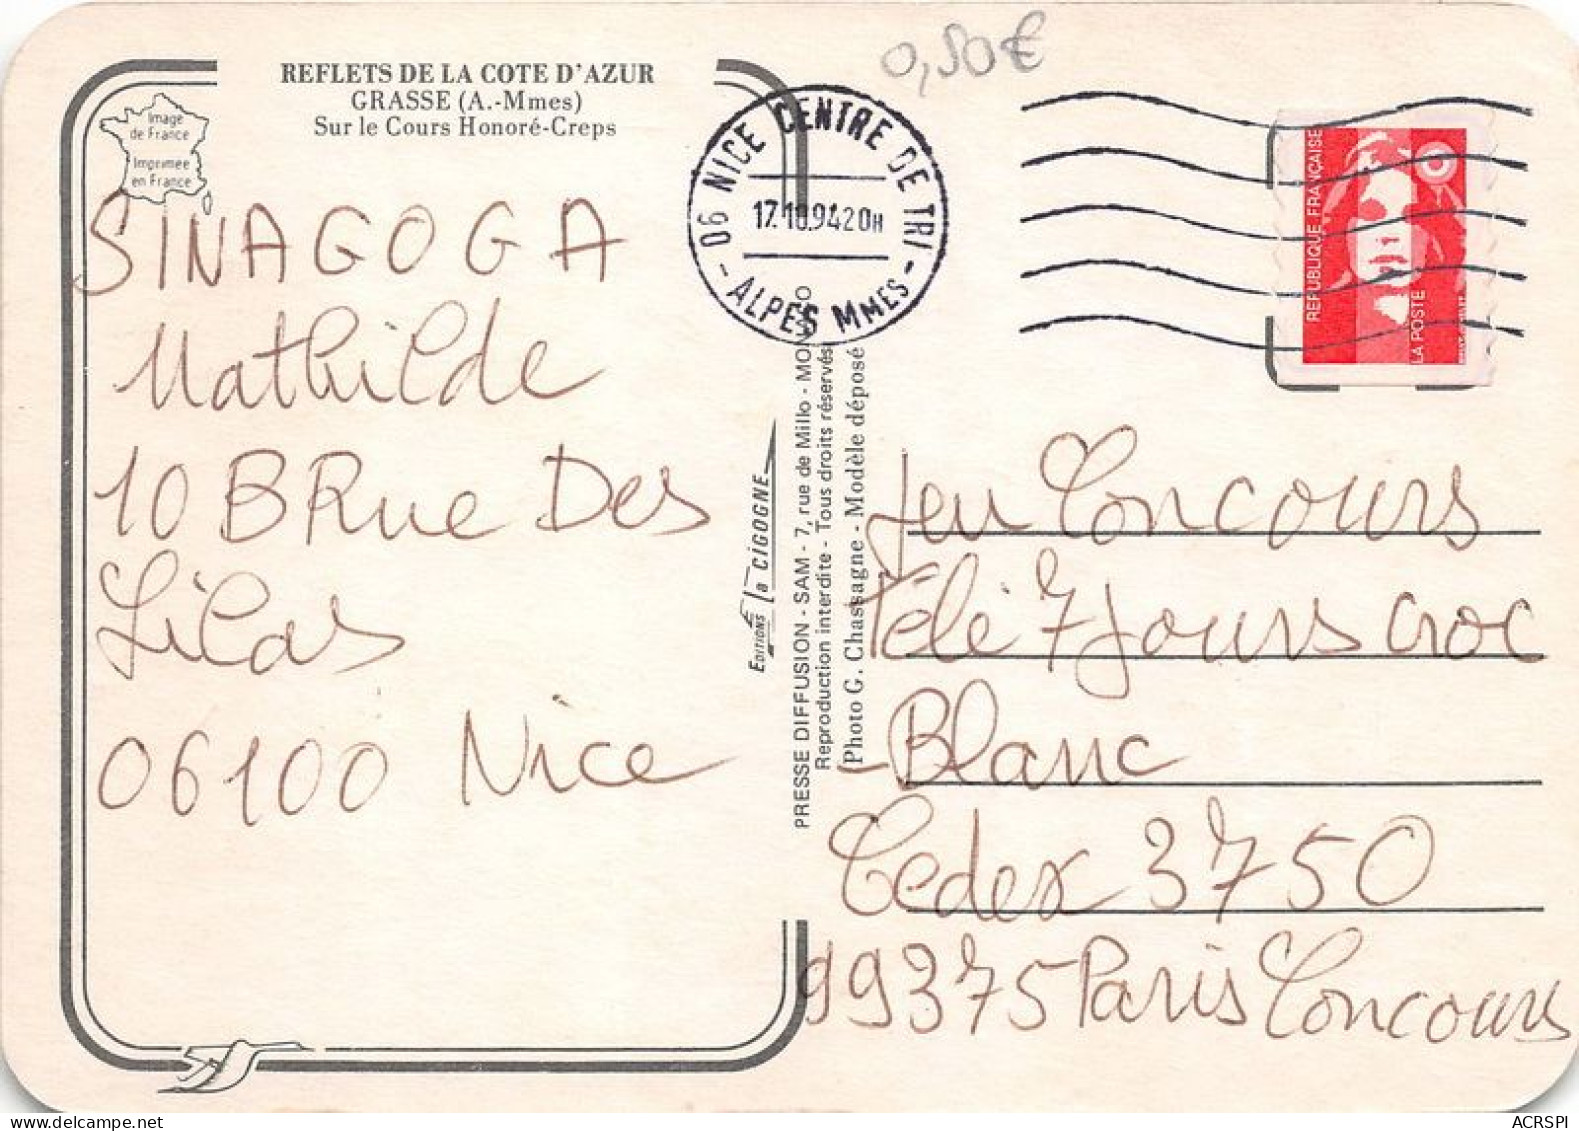 0,50€
REFLETS DE LA COTE D'AZUR
GRASSE (A.-Mmes)
Sur le Cours Honoré-Creps
Image
de France
Imprimée
en France
06 NICE CENTRE DE TRI
17.10.94 20H
- ALPES MMES -
REPUBLIQUE FRANÇAISE
LA POSTE
SINAGOGA
Mathilde
10 B Rue Des
Lilas
06100 Nice
EDITIONS la CIGOGNE
PRESSE DIFFUSION - SAM - 7, rue de Millo - MONACO
Reproduction interdite - Tous droits réservés
Photo G. Chassagne - Modèle déposé
Jeu Concours
Télé 7 Jours Croc
-Blanc
Cedex 3750
99375 Paris Concours
ACRSPI